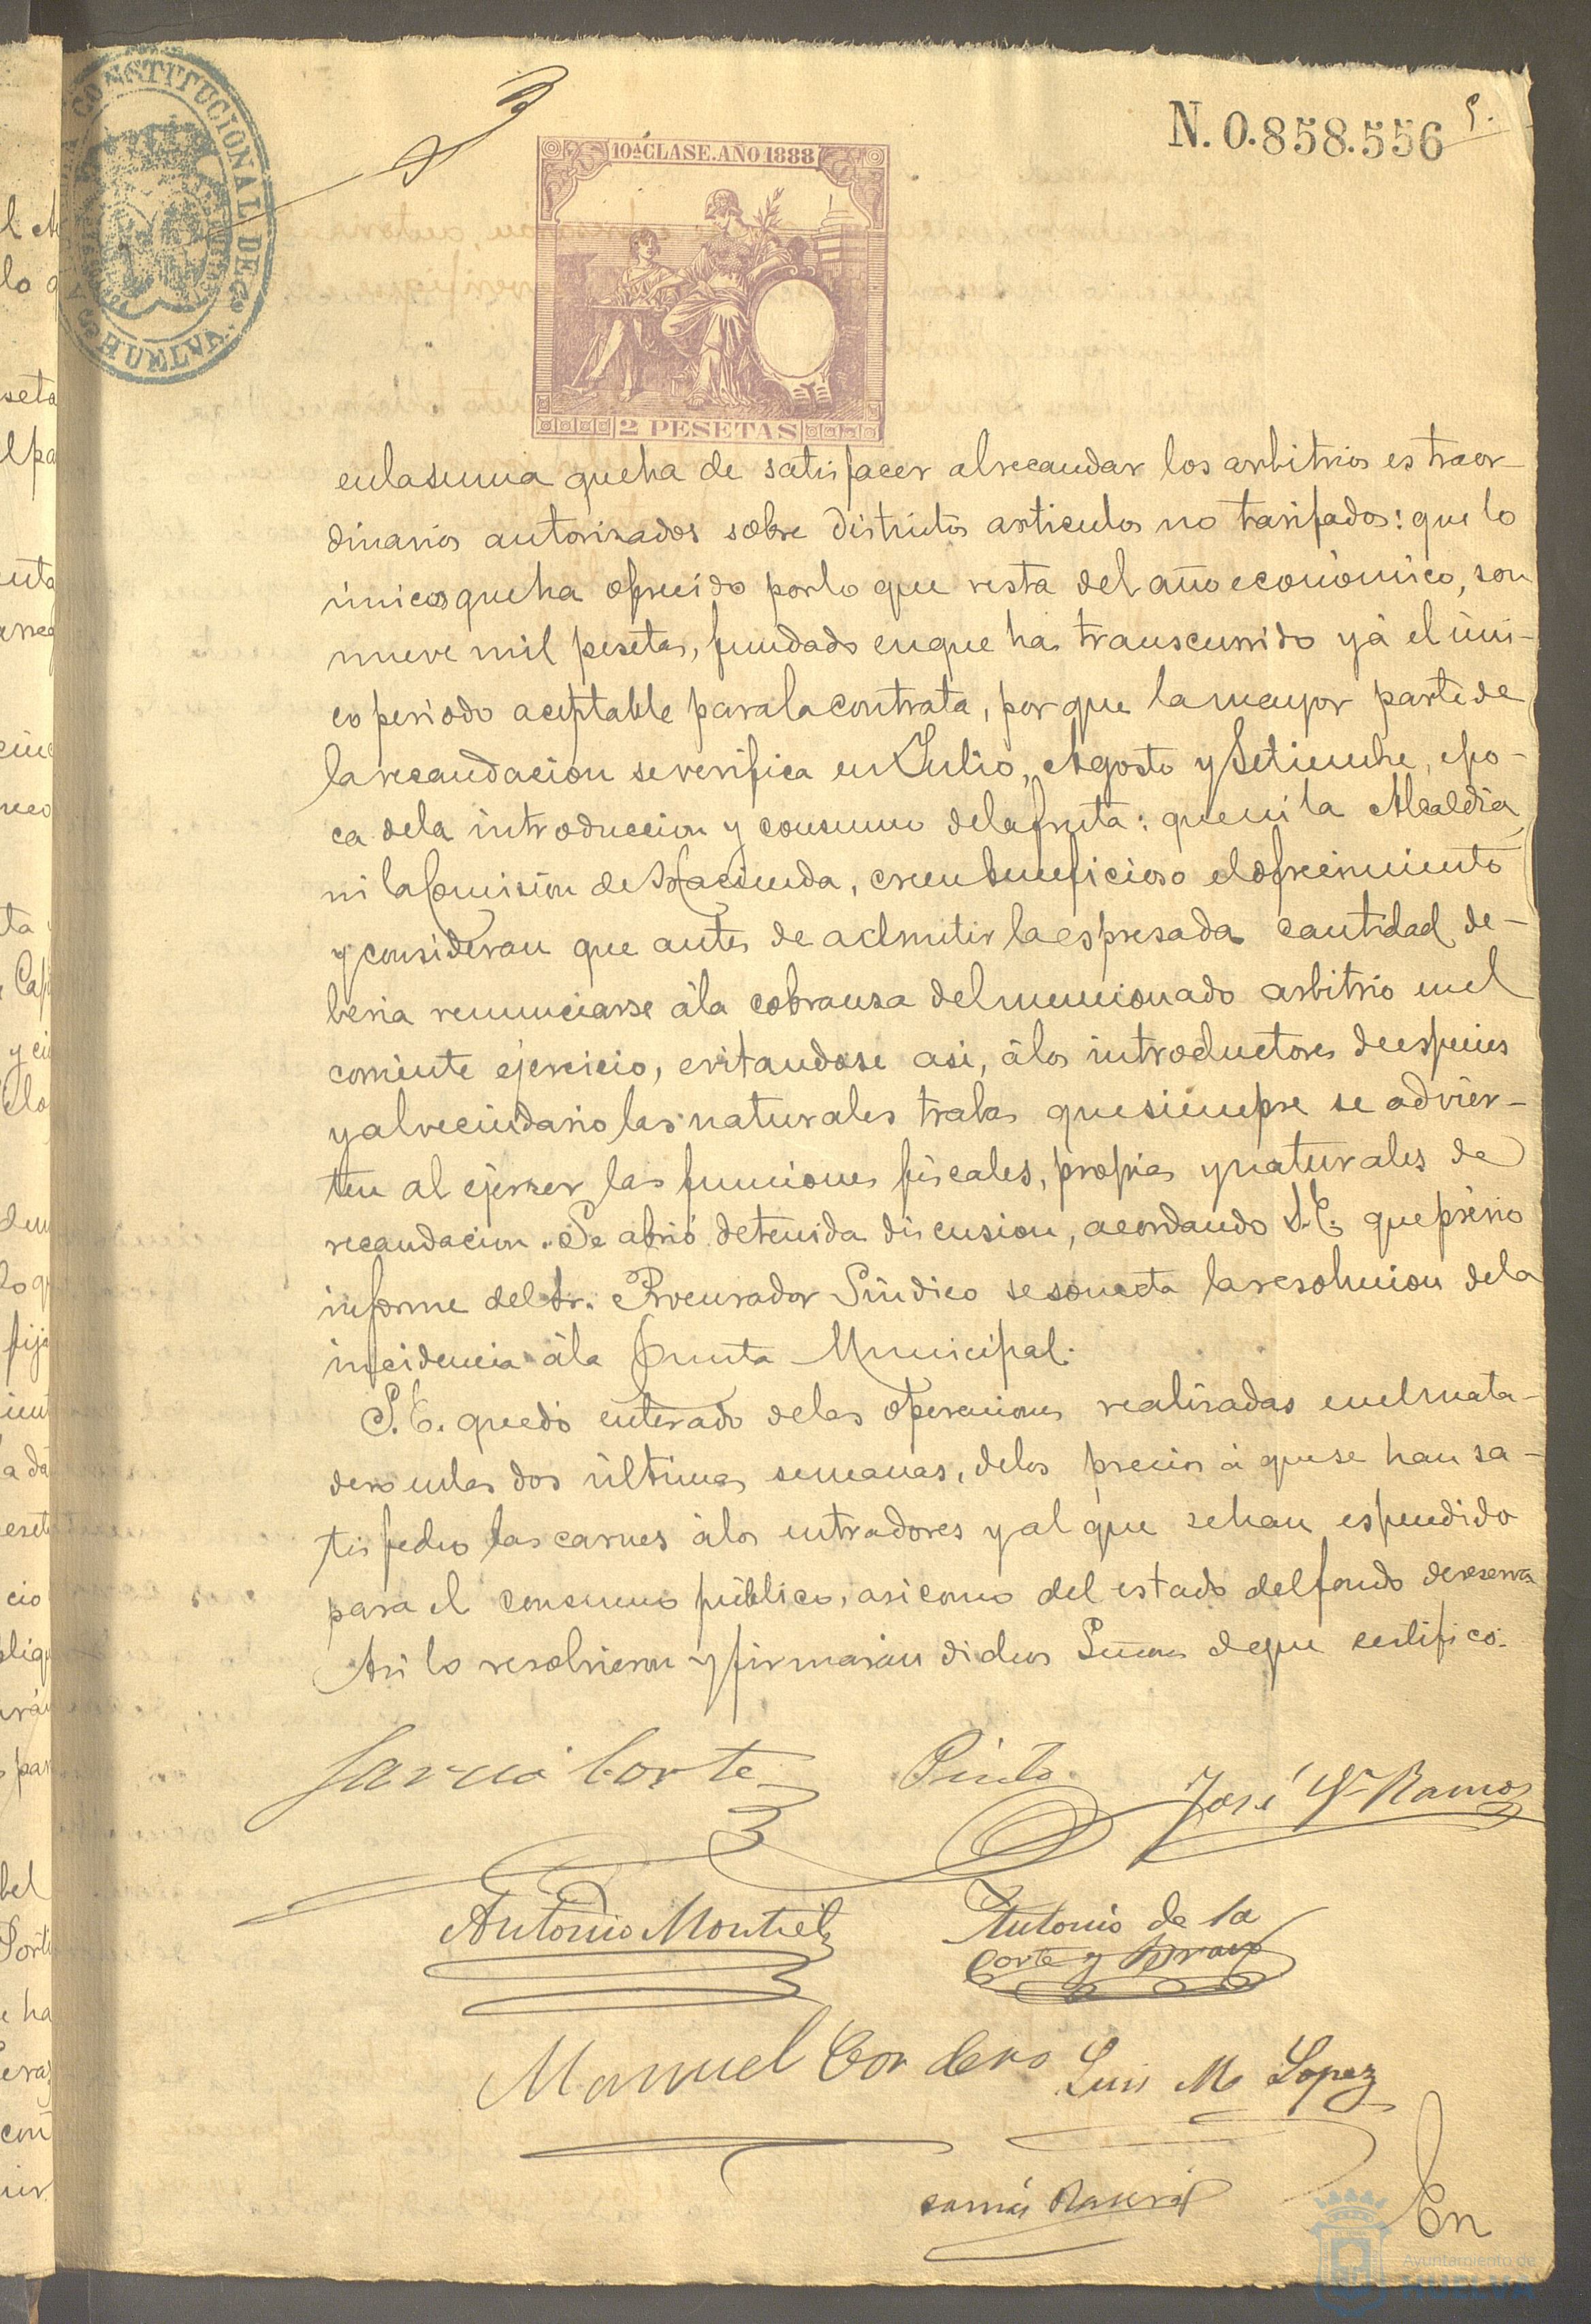 ALCALDIA CONSTITUCIONAL DE HUELVA
N. 0.858.556
5.
10ª CLASE. AÑO 1888
2 PESETAS
en la suma que ha de satisfacer al recaudar los arbitrios estraor-
dinarios autorizados sobre distintos articulos no tarifados: que lo
únicos que ha ofrecido por lo que resta del año económico, son
nueve mil pesetas, fundado en que ha transcurrido yá el úni-
co periodo aceptable para la contrata, por que la mayor parte de
la recaudacion se verifica en Julio, Agosto y Setiembre, épo-
ca de la introduccion y consumo de la fruta: que ni la Alcaldia,
ni la Comision de Hacienda, creen beneficioso el ofrecimiento
y consideran que antes de admitir la espresada cantidad de-
beria renunciarse á la cobranza del mencionado arbitrio en el
corriente ejercicio, evitandose asi, á los introductores de especies
y al vecindario las naturales trabas que siempre se advier-
ten al ejercer las funciones fiscales, propias y naturales de
recaudacion. Se abrió detenida discusion, acordando S.E. que prévio
informe del Sr. Procurador Síndico se someta la resolucion de la
incidencia á la Junta Municipal.
S.E. quedó enterado de las operaciones realizadas en el mata-
dero en las dos últimas semanas, de los precios á que se han sa-
tisfecho las carnes á los entradores y al que se han espendido
para el consumo público, asi como del estado del fondo de reserva
Asi lo resolvieron y firmarán dichos Señores de que certifico.
Garcia Corte
Pinto
José Gª Ramos
Antonio Montiel
Antonio de la
Corte y Bravo
Manuel Cordero
Luis M Lopez
En
Ayuntamiento de
HUELVA